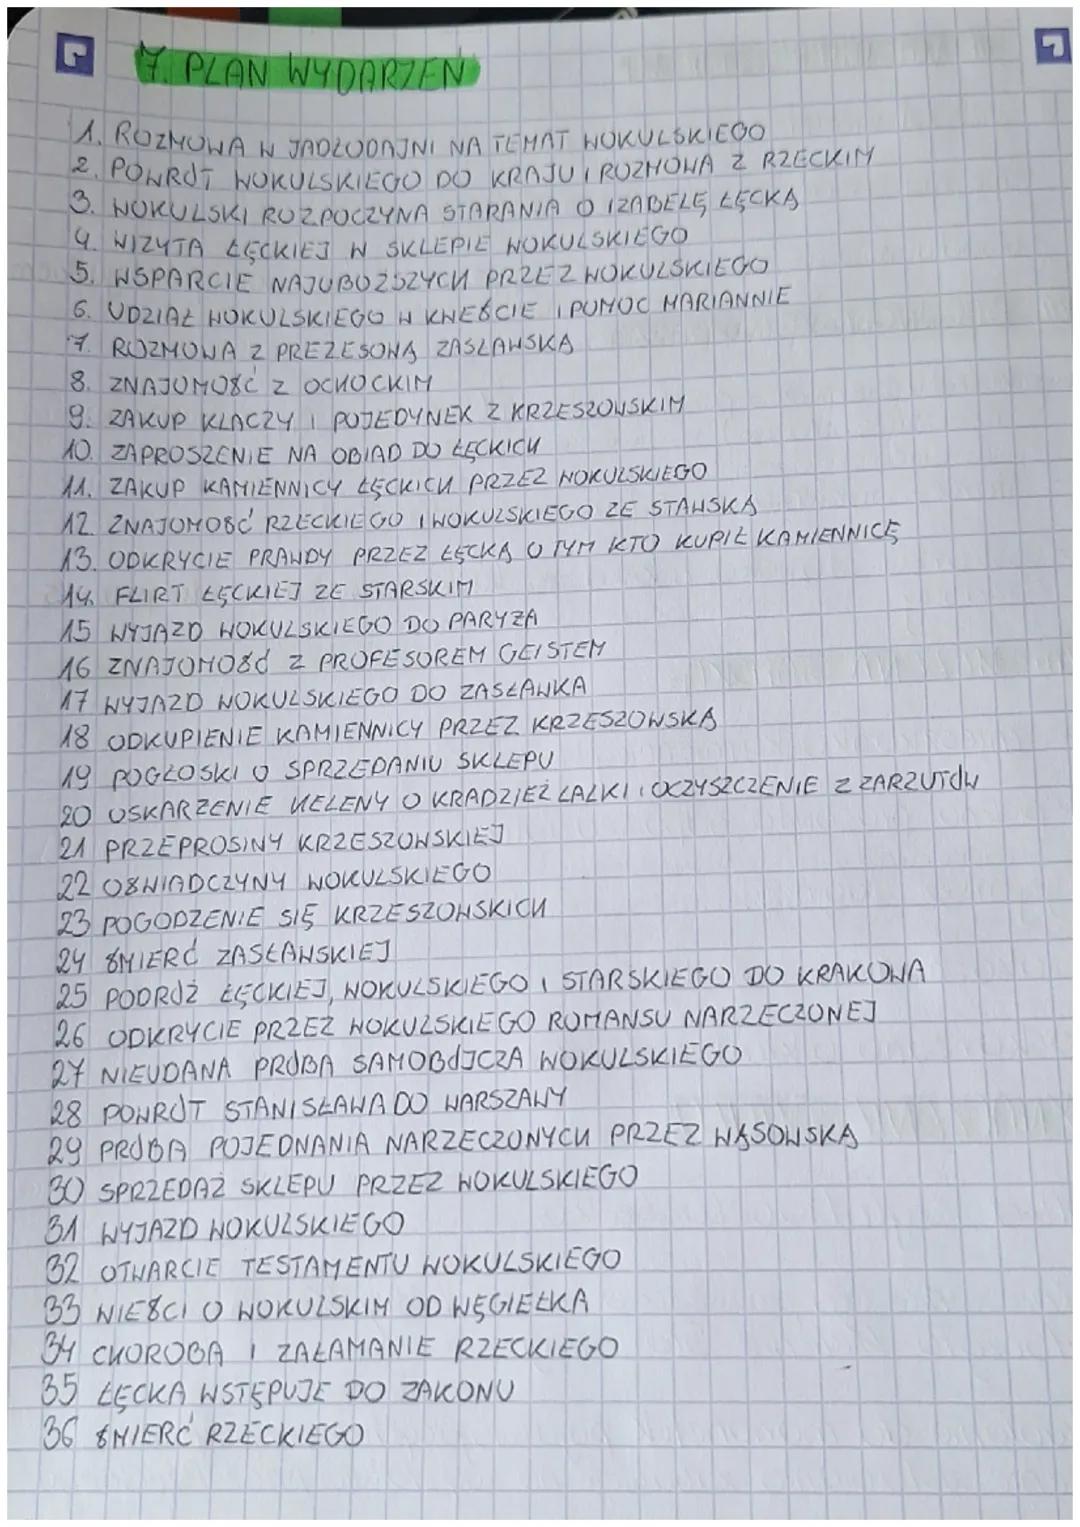 7. PLAN WYDARZEŃ
1. ROZMOWA W JADŁODAJNI NA TEMAT WOKULSKIEGO
2. POWRÓT WOKULSKIEGO DO KRAJU I ROZMOWA Z RZECKIM
3. WOKULSKI ROZPOCZYNA STARANIA O IZABELĘ ŁĘCKĄ
4. WIZYTA ŁĘCKIEJ W SKLEPIE WOKULSKIEGO
5. WSPARCIE NAJUBOŻSZYCH PRZEZ WOKULSKIEGO
6. UDZIAŁ WOKULSKIEGO W KWEŚCIE I POMOC MARIANNIE
7. ROZMOWA Z PREZESOWĄ ZASŁAWSKĄ
8. ZNAJOMOŚĆ Z OCHOCKIM
9. ZAKUP KLACZY I POJEDYNEK Z KRZESZOWSKIM
10. ZAPROSZENIE NA OBIAD DO ŁĘCKICH
11. ZAKUP KAMIENNICY ŁĘCKICH PRZEZ WOKULSKIEGO
12. ZNAJOMOŚĆ RZECKIEGO I WOKULSKIEGO ZE STAWSKĄ
13. ODKRYCIE PRAWDY PRZEZ ŁĘCKĄ O TYM KTO KUPIŁ KAMIENNICĘ
14. FLIRT ŁĘCKIEJ ZE STARSKIM
15 WYJAZD WOKULSKIEGO DO PARYŻA
16 ZNAJOMOŚĆ Z PROFESOREM GEISTEM
17 WYJAZD WOKULSKIEGO DO ZASŁAWKA
18 ODKUPIENIE KAMIENNICY PRZEZ KRZESZOWSKĄ
19 POGŁOSKI O SPRZEDANIU SKLEPU
20 OSKARŻENIE HELENY O KRADZIEŻ LALKI I OCZYSZCZENIE Z ZARZUTÓW
21 PRZEPROSINY KRZESZOWSKIEJ
22 OŚWIADCZYNY WOKULSKIEGO
23 POGODZENIE SIĘ KRZESZOWSKICH
24 ŚMIERĆ ZASŁAWSKIEJ
25 PODRÓŻ ŁĘCKIEJ, WOKULSKIEGO I STARSKIEGO DO KRAKOWA
26 ODKRYCIE PRZEZ WOKULSKIEGO ROMANSU NARZECZONEJ
27 NIEUDANA PRÓBA SAMOBÓJCZA WOKULSKIEGO
28 POWRÓT STANISŁAWA DO WARSZAWY
29 PRÓBA POJEDNANIA NARZECZONYCH PRZEZ WĄSOWSKĄ
30 SPRZEDAŻ SKLEPU PRZEZ WOKULSKIEGO
31 WYJAZD WOKULSKIEGO
32 OTWARCIE TESTAMENTU WOKULSKIEGO
33 WIEŚCI O WOKULSKIM OD WĘGIEŁKA
34 CHOROBA I ZAŁAMANIE RZECKIEGO
35 ŁĘCKA WSTĘPUJE DO ZAKONU
36 ŚMIERĆ RZECKIEGO